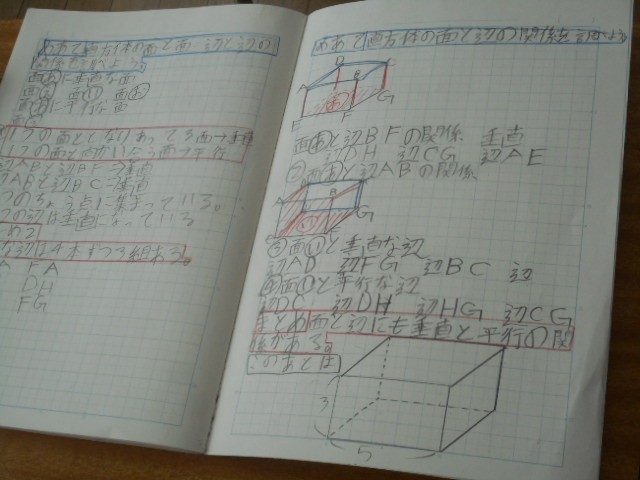 めあて直方体の面と面、辺と辺の
関係を調べよう。
面あに垂直な面
面
面あに平行な面
1つの面ととなりあってる面→垂直
1つの面と向かいあう面→平行
辺ABと辺BF→垂直
辺ABと辺BC→垂直
つのちょう点に集まっている。
つの辺は垂直になっている
め2
な辺は4本ずつ3組ある。
A EA
DH
FG
めあて直方体の面と辺の関係を調べよう
D C
A B
あ
E F G
面あと辺BFの関係 垂直
辺DH 辺CG 辺AE
②面あと辺ABの関係
い
F G
③面いと垂直な辺
辺AD 辺FG 辺BC 辺
④面いと平行な辺
辺DC 辺DH 辺HG 辺CG
まとめ面と辺にも垂直と平行の関
係がある。
このあとは
3
5